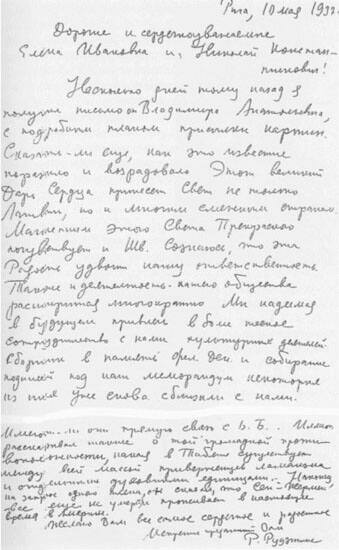 Рига, 10 мая 193
Дорогие и сердечноуважаемые
Елена Ивановна и Николай Констан-
тинович!
Несколько дней тому назад я
получил письмо от Владимира Анатольевича,
с подробным планом присылки картин.
Сказать-ли еще, как это известие
поразило и возрадовало Этот великий
Дар Сердца принесет Свет не только
Латвии, но и многим смежным странам.
Магнетизм этого Света Прекрасного
почувствует и Шв. Сознаюсь, что эта
Радость удвоит нашу ответственность.
Также и деятельность нашего общества
расширится многократно Мы надеемся
в будущем привлечь в более тесное
сотрудничество с нами культурных деятелей.
Сборник в память Фел. Ден. и собирание
подписей под наш меморандум некоторые
из них уже снова сблизили с нами.
Имеют-ли они прямую связь с Б. Б..
рассказывал также о той громадной проти-
воположности, какая в Тибете существует
между всей массой приверженцев ламаизма
и отдельными духовными единицами.
на запрос одного члена, он сказал, что Сен-Жермен
все еще не умер и проживает в настоящее
время в Америке.
Желаю Вам все самое сердечное и радостное
Искренно преданный Вам
Р. Рудзитис